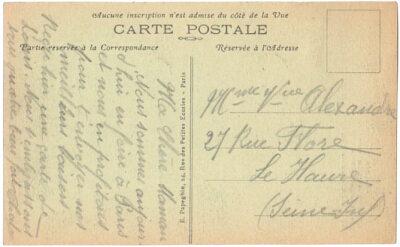 Aucune inscription n'est admise du côté de la Vue
CARTE POSTALE
Partie réservée à la Correspondance
Réservée à l'Adresse
Ma Chère Maman
Nous sommes aujour
d'hui en foire à Paris
et nous en profitons
pour t'envoyer nos
meilleurs baisers
hier une carte de
Nous t'embrassons
tous
E. Papeghin, 24, Rue des Petites Ecuries - Paris
Mme Vve Alexandre
27 Rue Flore
Le Havre
(Seine Inf)